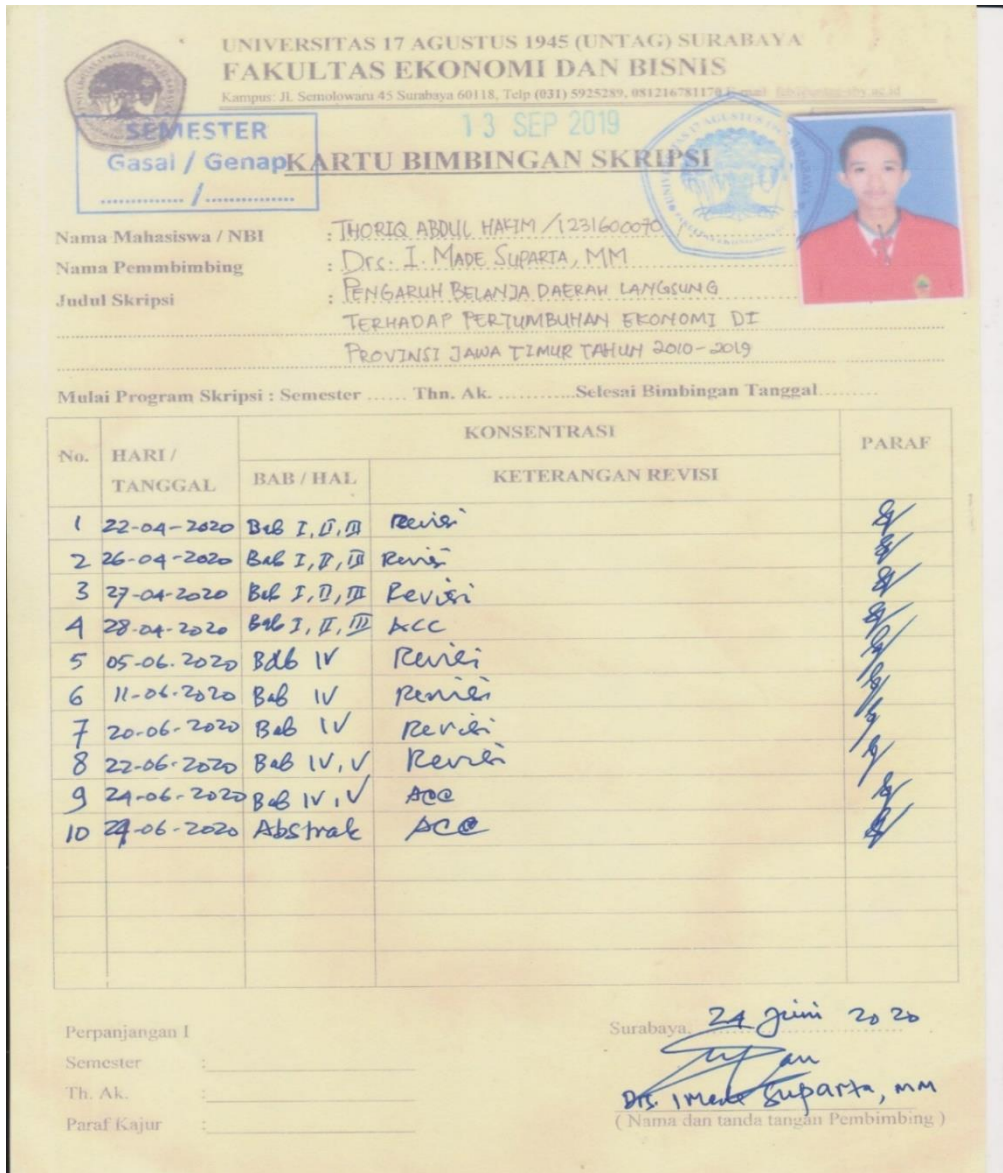 UNIVERSITAS 17 AGUSTUS 1945 (UNTAG) SURABAYA
FAKULTAS EKONOMI DAN BISNIS
Kampus: Jl. Semolowaru 45 Surabaya 60118, Telp (031) 5925289, 081216781170
SEMESTER
Gasal / Genap
............../..............
13 SEP 2019
KARTU BIMBINGAN SKRIPSI
Nama Mahasiswa / NBI : THORIQ ABDUL HAKIM / 1231600070
Nama Pemmbimbing : Drs. I. MADE SUPARTA, MM
Judul Skripsi : PENGARUH BELANJA DAERAH LANGSUNG
TERHADAP PERTUMBUHAN EKONOMI DI
PROVINSI JAWA TIMUR TAHUN 2010-2019
Mulai Program Skripsi : Semester ...... Thn. Ak. ............Selesai Bimbingan Tanggal.........
No. HARI / TANGGAL KONSENTRASI PARAF
BAB / HAL KETERANGAN REVISI
1 22-04-2020 Bab I, II, III Revisi
2 26-04-2020 Bab I, II, III Revisi
3 27-04-2020 Bab I, II, III Revisi
4 28-04-2020 Bab I, II, III ACC
5 05-06-2020 Bab IV Revisi
6 11-06-2020 Bab IV Revisi
7 20-06-2020 Bab IV Revisi
8 22-06-2020 Bab IV, V Revisi
9 24-06-2020 Bab IV, V ACC
10 24-06-2020 Abstrak ACC
Perpanjangan I
Semester :
Th. Ak. :
Paraf Kajur :
Surabaya, 24 Juni 2020
Drs. I Made Suparta, MM
( Nama dan tanda tangan Pembimbing )